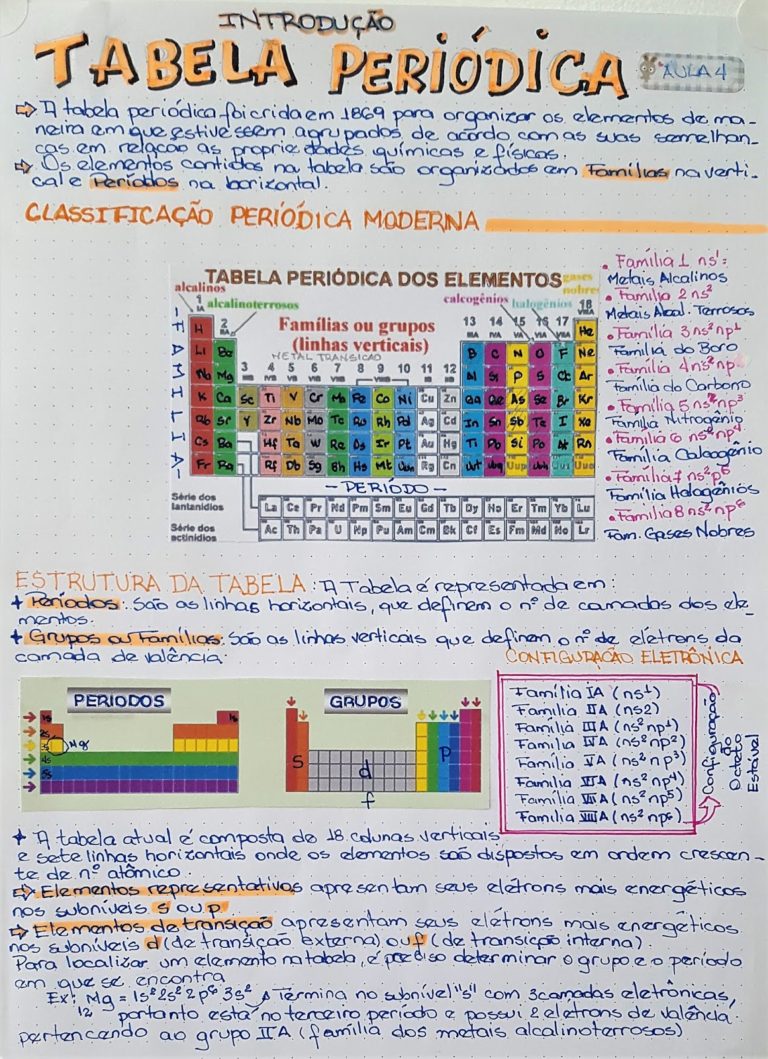 INTRODUÇÃO
TABELA PERIÓDICA
AULA 4
A tabela periódica foi crida em 1869 para organizar os elementos de ma-
neira em que estivessem agrupados de acordo com as suas semelhan-
ças em relação as propriedades químicas e físicas.
Os elementos contidos na tabela são organizados em Famílias na verti-
cal e Períodos na horizontal.
CLASSIFICAÇÃO PERIÓDICA MODERNA
TABELA PERIÓDICA DOS ELEMENTOS
gases nobres
alcalinos
alcalinoterrosos
calcogênios
halogênios
Famílias ou grupos
(linhas verticais)
METAL TRANSIÇÃO
- FAMILIA -
1 IA
2 IIA
3 4 5 6 7 8 9 10 11 12
13 14 15 16 17 18
H He
Li Be B C N O F Ne
Mg P S Ar
K Ca Sc Ti V Cr Mn Fe Co Ni Cu Zn Ga Ge As Se Br Kr
Rb Sr Y Zr Nb Mo Tc Ru Rh Pd Ag Cd In Sn Sb Te I Xe
Cs Ba Hf Ta W Re Os Ir Pt Au Hg Ti Pb Po At Rn
Fr Ra Rf Db Sg Bh Hs Mt Uun Rg Cn Uut Uuq Uup Uuh Uus Uuo
- PERÍODO -
Série dos
lantanídios
La Ce Pr Nd Pm Sm Eu Gd Tb Dy Ho Er Tm Yb Lu
Série dos
actinídios
Ac Th Pa U Np Pu Am Cm Bk Cf Es Fm Md No Lr
• Família 1 ns¹:
Metais Alcalinos
• Família 2 ns²
Metais Alcal. Terrosos
• Família 3 ns² np¹
Família do Boro
• Família 4 ns² np²
Família do Carbono
• Família 5 ns² np³
Família Nitrogênio
• Família 6 ns² np⁴
Família Calcogênio
• Família 7 ns² p⁵
Família Halogênios
• Família 8 ns² np⁶
Fam. Gases Nobres
ESTRUTURA DA TABELA: A Tabela é representada em:
+ Períodos: São as linhas horizontais, que definem o nº de camadas dos ele_
mentos.
+ Grupos ou Famílias: São as linhas verticais que definem o nº de elétrons da
camada de valência.
CONFIGURAÇÃO ELETRÔNICA
PERIODOS
1s
1s
2s
3s
Mg
4s
5s
GRUPOS
s
d
p
f
Família IA (ns¹)
Família IIA (ns2)
Família IIIA (ns² np¹)
Família IVA (ns² np²)
Família VA (ns² np³)
Família VIA (ns² np⁴)
Família VIIA (ns² np⁵)
Família VIIIA (ns² np⁶)
Configuração
do
Octeto
Estável
+ A tabela atual é composta de 18 colunas verticais
e sete linhas horizontais onde os elementos são dispostos em ordem crescen-
te de nº atômico.
Elementos representativos apresentam seus elétrons mais energéticos
nos subníveis s ou p
Elementos de transição apresentam seus elétrons mais energéticos
nos subníveis d (de transição externa) ou f (de transição interna).
Para localizar um elemento na tabela, é preciso determinar o grupo e o período
em que se encontra
Ex: ₁₂Mg = 1s² 2s² 2p⁶ 3s² Termina no subnível "s" com 3 camadas eletrônicas,
portanto está no terceiro período e possui 2 eletrons de valência.
pertencendo ao grupo IIA (família dos metais alcalinoterrosos)